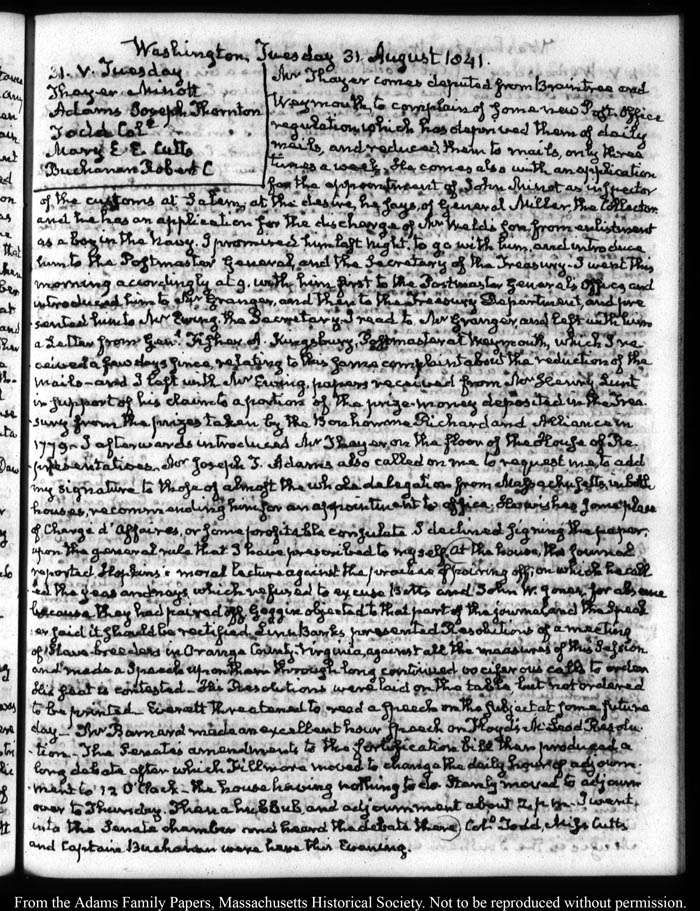 Washington, Tuesday 31 August 1841.
31. V. Tuesday
Thayer Minott
Adams Joseph Thornton
Todd Col.
Mary E. E. Cutts
Buchanan Robert C
Mr Thayer comes deputed from Braintree and
Weymouth, to complain of some new Post-Office
regulation, which has deprived them of daily
mails, and reduced them to mails, only three
times a week. He comes also with an application
for the appointment of John Minot as inspector
of the customs at Salem, at the desire, he says, of General Miller, the Collector
and he has an application for the discharge of Mr Wald's son, from enlistment
as a boy in the Navy. I promised him last night, to go with him, and introduce
him to the Postmaster General, and the Secretary of the Treasury. I went this
morning accordingly at 9. with him first to the Postmaster General's Office, and
introduced him to Mr Granger, and then to the Treasury Department, and pre
sented him to Mr Ewing the Secretary. I read to Mr Granger, and left with him
a Letter from Genl. Fisher A. Kingsbury, Postmaster at Weymouth, which I re
ceived a few days since, relating to this same complaint about the reduction of the
mails - and I left with Mr Ewing, papers received from Mr Henry Lunt
in support of his claim to a portion of the prize-money deposited in the Trea
sury from the prizes taken by the Bonhomme Richard and Alliance in
1779. I afterwards introduced Mr Thayer, on the floor of the House of Re
presentatives. Mr Joseph T. Adams also called on me to request me, to add
my signature to those of almost the whole delegation from Massachusetts, in both
houses, recommending him for an appointment to office; He wishes some place
of Chargé d'Affaires, or some profitable consulate. I declined signing the paper,
upon the general rule that I have prescribed to myself. At the house, the Journal
reported Hopkins's moral lecture against the practice of pairing off; on which he call
ed the yeas and nays, which refused to excuse Botts and John W. Jones, for absence
because they had paired off. Goggin objected to that part of the journal and the Speak
er said it should be rectified. Linn Banks, presented Resolutions of a meeting
of Slave-breeders in Orange County, Virginia, against all the measures of this Session
and made a Speech upon them through long continued vociferous calls to order
His seat is contested - His Resolutions were laid on the table, but not ordered
to be printed - Everett threatened to read a speech on the subject at some future
day - Mr Barnard made an excellent hour speech on Floyd's McLeod Resolu
tion - The Senate's amendments to the fortification bill then produced a
long debate after which Fillmore moved to change the daily hour of adjourn
ment to 12 O'Clock - the house having nothing to do. Stanly moved to adjourn
over to Thursday. Then a hubbub, and adjournment about 2 p.m. I went
into the Senate chamber and heard the debate there, Coll. Todd, Miss Cutts
and Captain Buchanan were here this Evening.
From the Adams Family Papers, Massachusetts Historical Society. Not to be reproduced without permission.